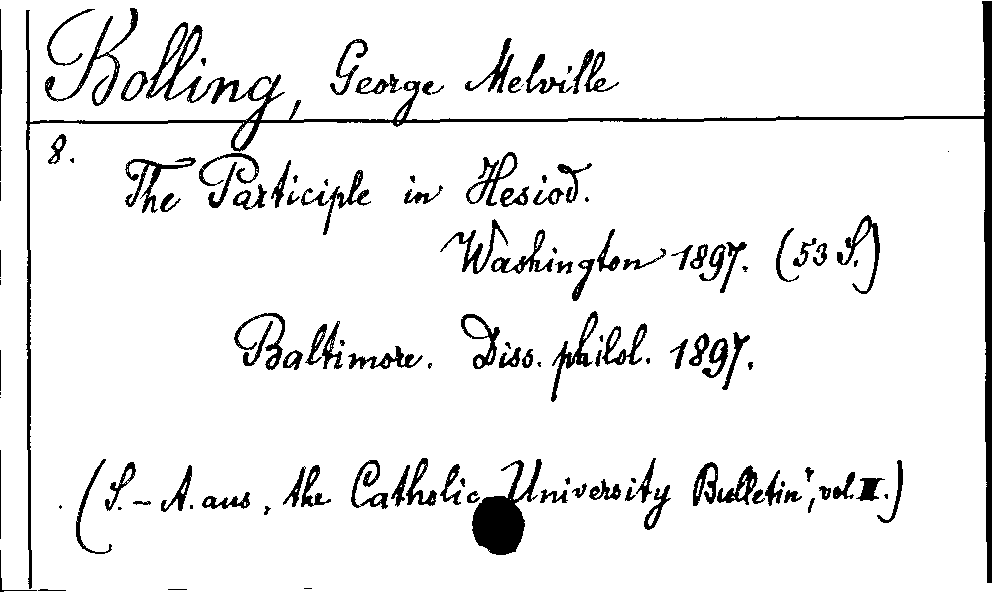 Bolling, George Melville
8.
The Participle in Hesiod.
Washington 1897. (53 S.)
Baltimore. Diss. philol. 1897.
(S.-A. aus „the Catholic University Bulletin", vol. III.)